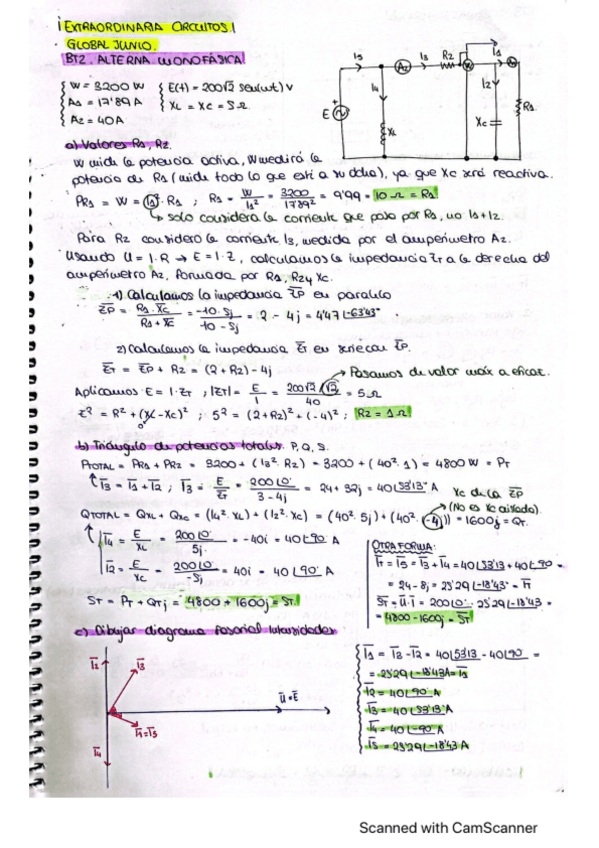 ¡EXTRAORDINARIA CIRCUITOS!
GLOBAL JUNIO.
BT2. ALTERNA MONOFÁSICA
W = 3200 W
A1 = 17'89 A
A2 = 40A
E(t) = 200√2 sen(wt) V
XL = XC = 5Ω
I5
A2
I3
R2
W
I1
I4
I2
E
XL
XC
R1
a) Valores R1, R2.
W mide la potencia activa, W medirá la
potencia de R1 (mide todo lo que está a su dcha), ya que XC será reactiva.
PR1 = W = I1² · R1 ; R1 = W / I1² = 3200 / 17'89² = 9'99 = 10 Ω = R1
solo considera la corriente que pasa por R1, no I1+I2.
Para R2 considero la corriente I3, medida por el amperímetro A2.
Usando U = I·R → E = I·Z, calculamos la impedancia ZT a la derecha del
amperímetro A2, formada por R1, R2 y XC.
1) Calculamos la impedancia ZP en paralelo
ZP = R1·XC / R1 + XC = -10·5j / 10 - 5j = 2 - 4j = 4'47 |-63'43°
2) Calculamos la impedancia ZT en serie con ZP.
ZT = ZP + R2 = (2 + R2) - 4j
Pasamos de valor máx a eficaz.
Aplicamos E = I·ZT ; |ZT| = E / I = 200√2 / √2 / 40 = 5Ω
Z² = R² + (XL - XC)² ; 5² = (2+R2)² + (-4)² ; R2 = 1Ω
0
b) Triángulo de potencias totales. P, Q, S.
PTOTAL = PR1 + PR2 = 3200 + (I3² · R2) = 3200 + (40² · 1) = 4800 W = PT
I3 = I1 + I2 ; I3 = E / ZT = 200|0° / 3 - 4j = 24 + 32j = 40|53'13° A
XC de la ZP
(No es XC aislada).
QTOTAL = QXL + QXC = (I4² · XL) + (I2² · XC) = (40² · 5j) + (40² · (-4j)) = 1600j = QT.
I4 = E / XL = 200|0° / 5j = -40i = 40|-90 A
I2 = E / XC = 200|0° / 5j = 40i = 40|90 A
ST = PT + QTj = 4800 + 1600j = ST
OTRA FORMA:
IT = I5 = I3 + I4 = 40|53'13 + 40|-90 =
= 24 - 8j = 25'29|-18'43° = IT
ST = U·I = 200|0° · 25'29|-18'43 =
= 4800 - 1600j = ST
c) Dibujar diagrama fasorial intensidades
I2
I3
U = E
I1 = I5
I4
I1 = I3 - I2 = 40|53'13 - 40|90 =
= 25'29|-18'43A = I1
I2 = 40|90 A
I3 = 40|53'13 A
I4 = 40|-90 A
I5 = 25'29|-18'43 A
Scanned with CamScanner